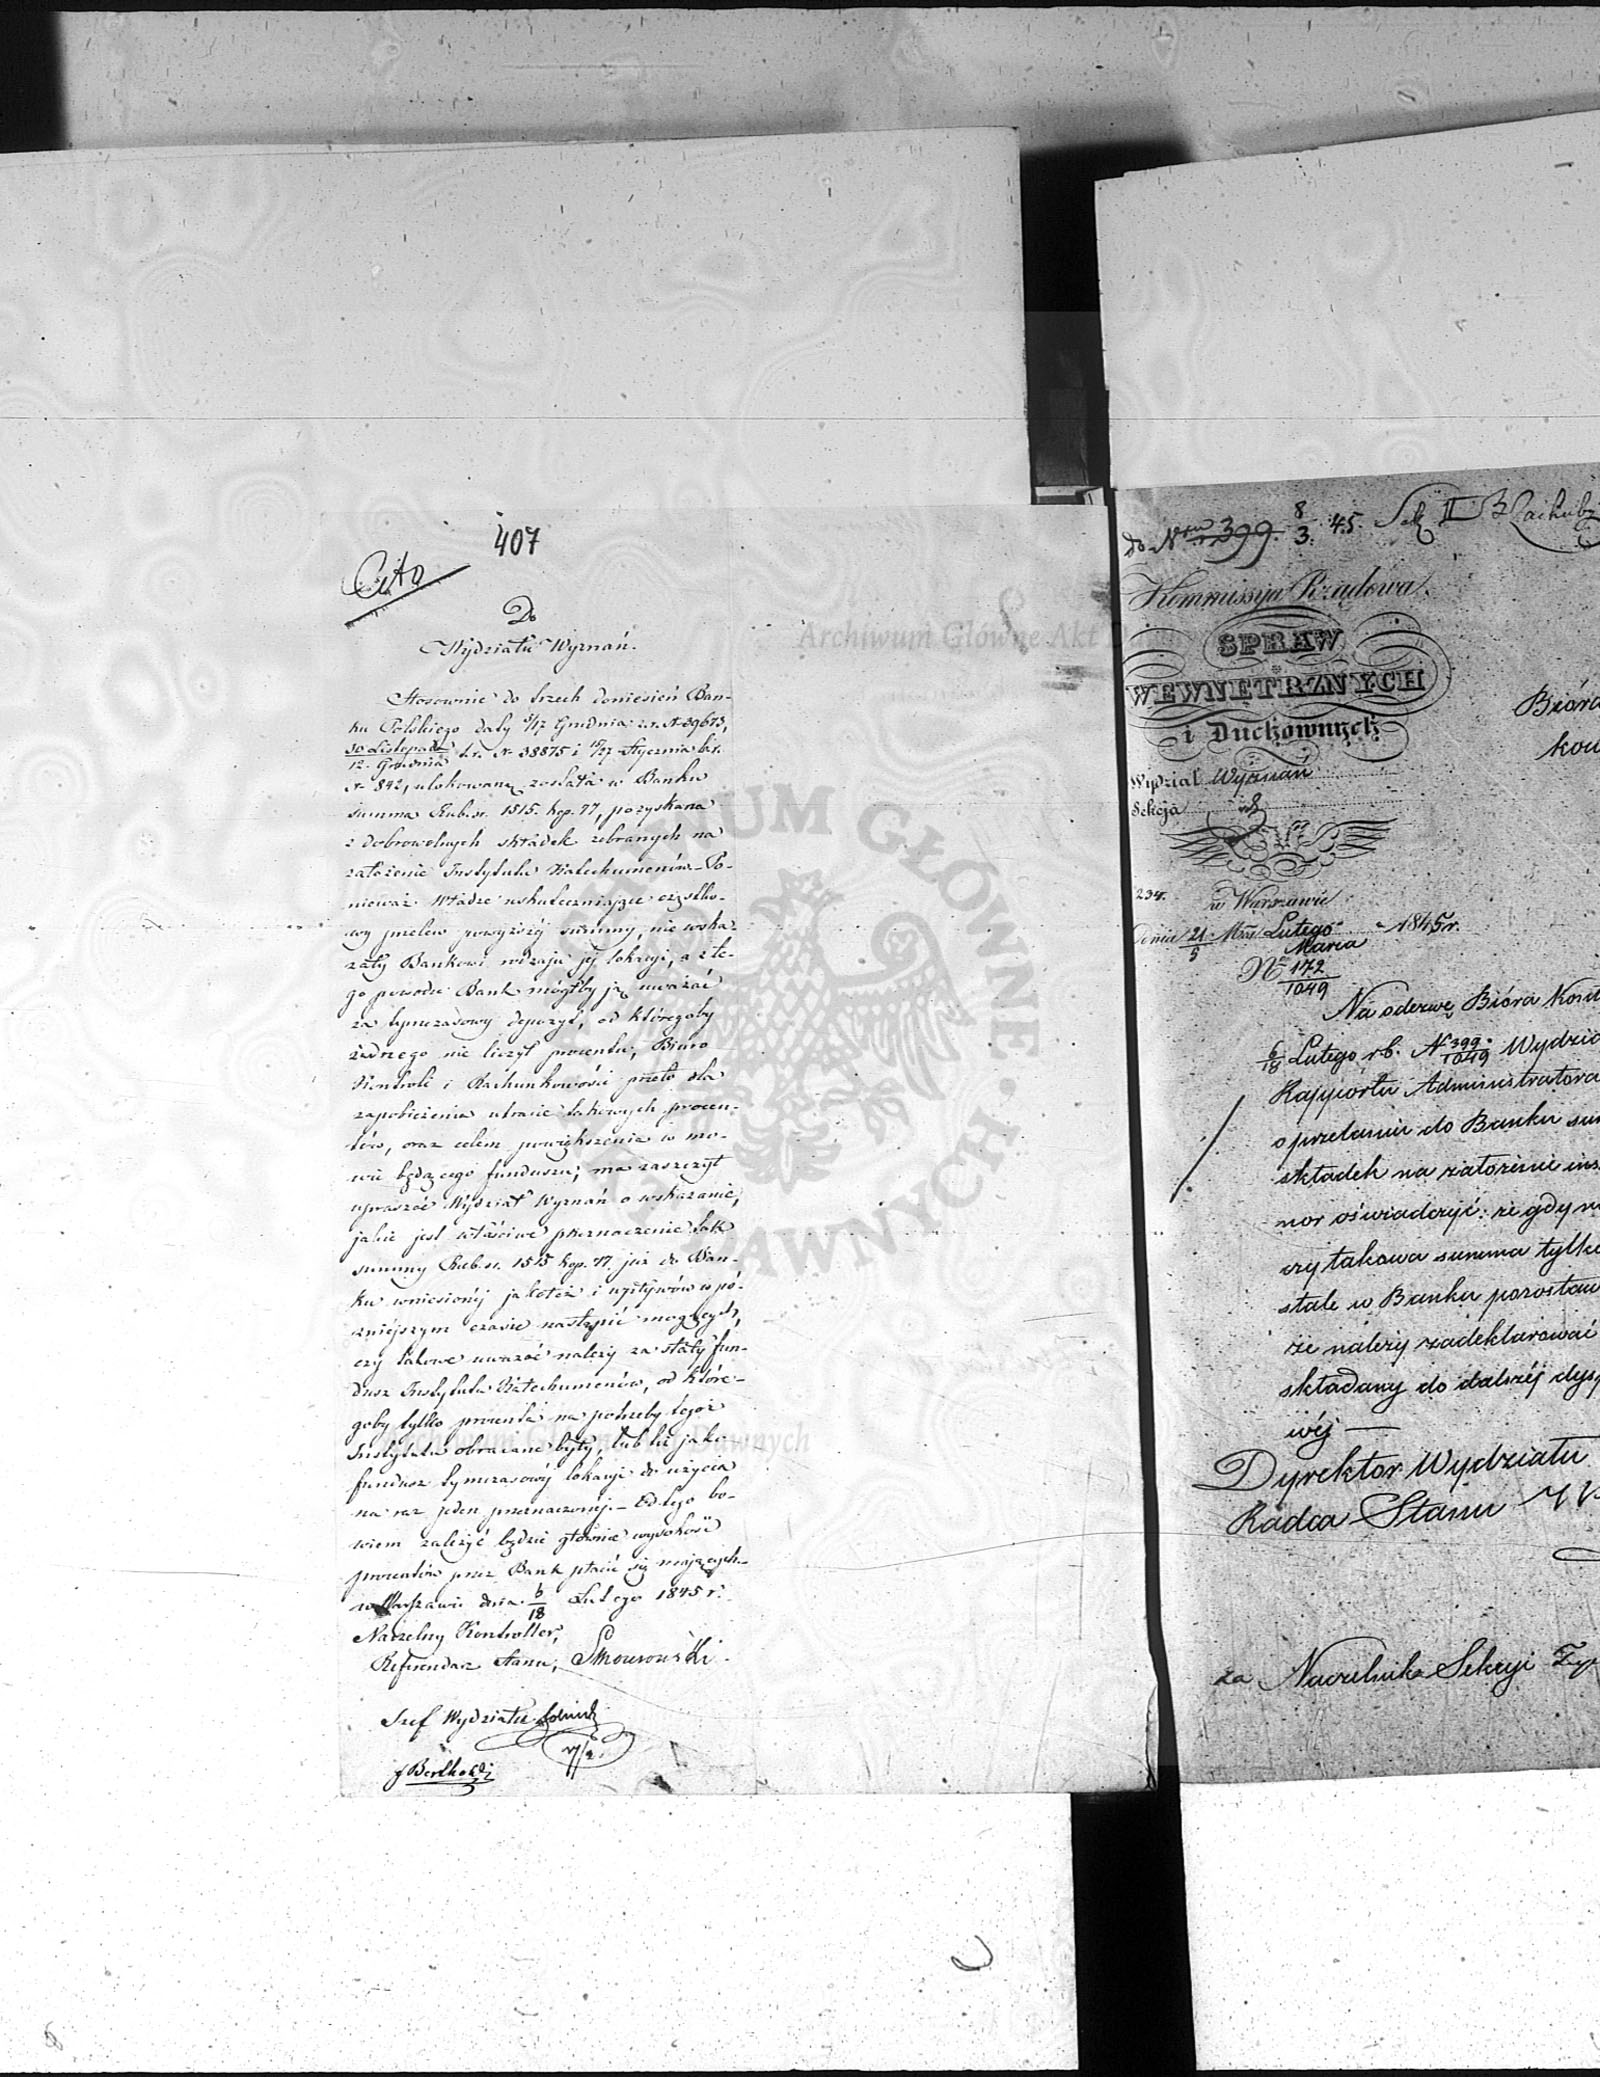 407
Cito
Do
Wydziału Wyznań.
Stosownie do trzech doniesień Ban-
ku Polskiego daty 5/17 Grudnia z.r. N 39673,
30 Listopada/12 Grudnia t.r. N 38875 i 15/27 Stycznia b.r.
N 842, ulokowaną została w Banku
summa Rub. sr. 1515. kop. 77, pozyskana
z dobrowolnych składek zebranych na
założenie Instytutu Katechumenów. – Po-
nieważ Władze uskuteczniające cząstko-
wy przelew powyższej summy, nie wska-
zały Bankowi rodzaju jej lokacyi, a z te-
go powodu Bank mógłby ją uważać
za tymczasowy depozyt, od któregoby
żadnego nie liczył procentu, Biuro
Kontroli i Rachunkowości przeto dla
zapobieżenia utracie takowych procen-
tów, oraz celem powiększenia w mo-
wie będącego funduszu, ma zaszczyt
upraszać Wydział Wyznań o wskazanie,
jakie jest właściwe przeznaczenie tak
summy Rub. sr. 1515 kop. 77. już do Ban-
ku wniesionéj jakoteż i wpływów w pó-
źniejszym czasie nastąpić mogących,
czy takowe uważać należy za stały fun-
dusz Instytutu Katechumenów, od które-
goby tylko procenta na potrzeby tegoż
Instytutu obracane były, lub też jako
fundusz tymczasowéj lokacyi do użycia
na raz jeden przeznaczonéj. – Od tego bo-
wiem zależyć będzie głównie wysokość
procentów przez Bank płacić się mających.
w Warszawie dnia 6/18 Lutego 1845 r.
Naczelny Kontroller,
Referendarz Stanu,
Szef Wydziału
do Nru 399. 8/3 45. Sek II
Kommissya Rządowa
SPRAW
WEWNĘTRZNYCH
i Duchownych
Wydział Wyznań
Sekcja
234.
w Warszawie
dnia 21/5 Mca Lutego/Marca 1845 r.
No 172/1049
Bióra
Na odezwę Bióra Kont
6/18 Lutego r.b. N 399/1049 Wydzia
Rapportu Administratora
o przelaniu do Banku sum
składek na założenie ins
nor oświadczyć: że gdy n
czy takowa summa tylko
stale w Banku pozostaw
że należy zadeklarować
składany do dalszéj dys
wéj —
Dyrektor Wydziału
Radca Stanu
za Naczelnika Sekcyi
ARCHIWUM GŁÓWNE AKT DAWNYCH
Archiwum Główne Akt D
Archiwum Główne Akt Dawnych